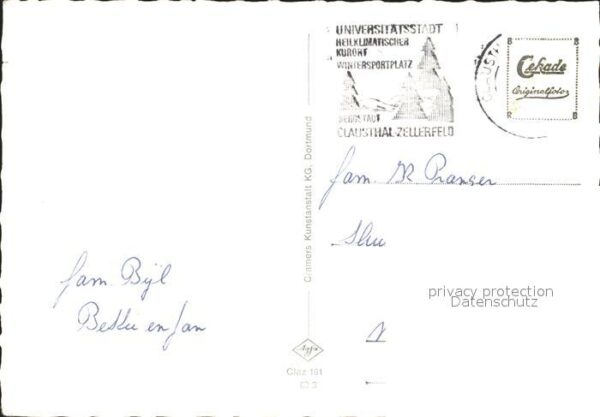 UNIVERSITÄTSSTADT
HEILKLIMATISCHER
KURORT
WINTERSPORTPLATZ
BERGSTADT
CLAUSTHAL-ZELLERFELD
CLAUST
Cekade
Originalfoto
Cramers Kunstanstalt KG, Dortmund
fam. Pranger
privacy protection
Datenschutz
fam. Bijl
en Jan
Agfa
Claz 181